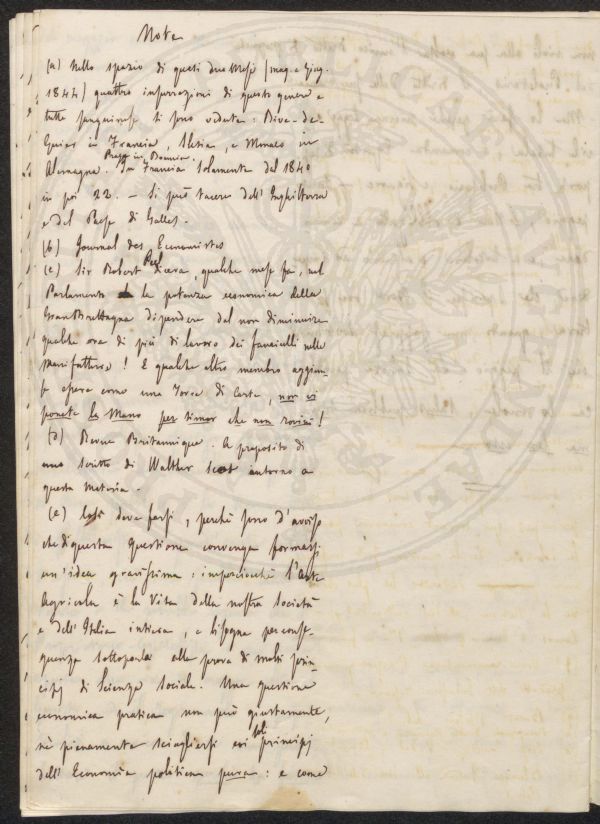 Note
(a) Nello spazio di questi due Mesi (mag. e Giug.
1844) quattro insurrezioni di questo genere e
tutte sanguinose si sono vedute: Rive-de-
Gier in Francia, Slesia, e Monaco in
Praga in Boemia.
Alemagna. In Francia solamente dal 1840
in poi 22. — Si può tacere dell'Inghilterra
e del Paese di Galles.
(b) Journal des Economistes
(c) Sir Robert Peel diceva, qualche mese fa, nel
Parlamento la potenza economica della
Gran Brettagna dipendere dal non diminuire
qualche ora di più di lavoro dei fanciulli nelle
Manifatture! E qualche altro membro aggiun-
se essere come una Torre di Carte, non ci
ponete la Mano per timor che non rovini!
(d) Revue Britannique. A proposito di
uno scritto di Walther Scot intorno a
questa materia.
(e) Così deve farsi, perchè sono d'avviso
che di questa questione convenga formarsi
un'idea gravissima: imperciocchè l'Arte
Agricola è la Vita della nostra società
e dell'Italia intiera, e bisogna per conse-
guenza sottoporla alla prova di molti prin-
cipj di Scienza Sociale. Una questione
economica pratica non può giustamente,
nè pienamente sciogliersi coi soli principj
dell'Economia politica pura: e come